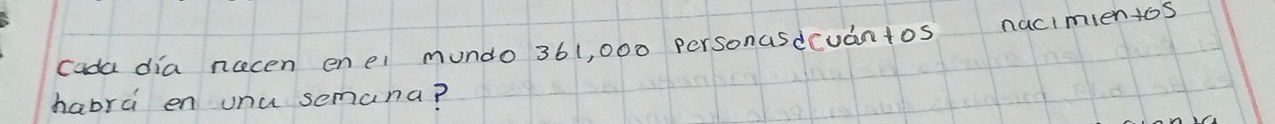 Cada día nacen en el mundo 361,000 personas ¿cuántos nacimientos
habrá en una semana?